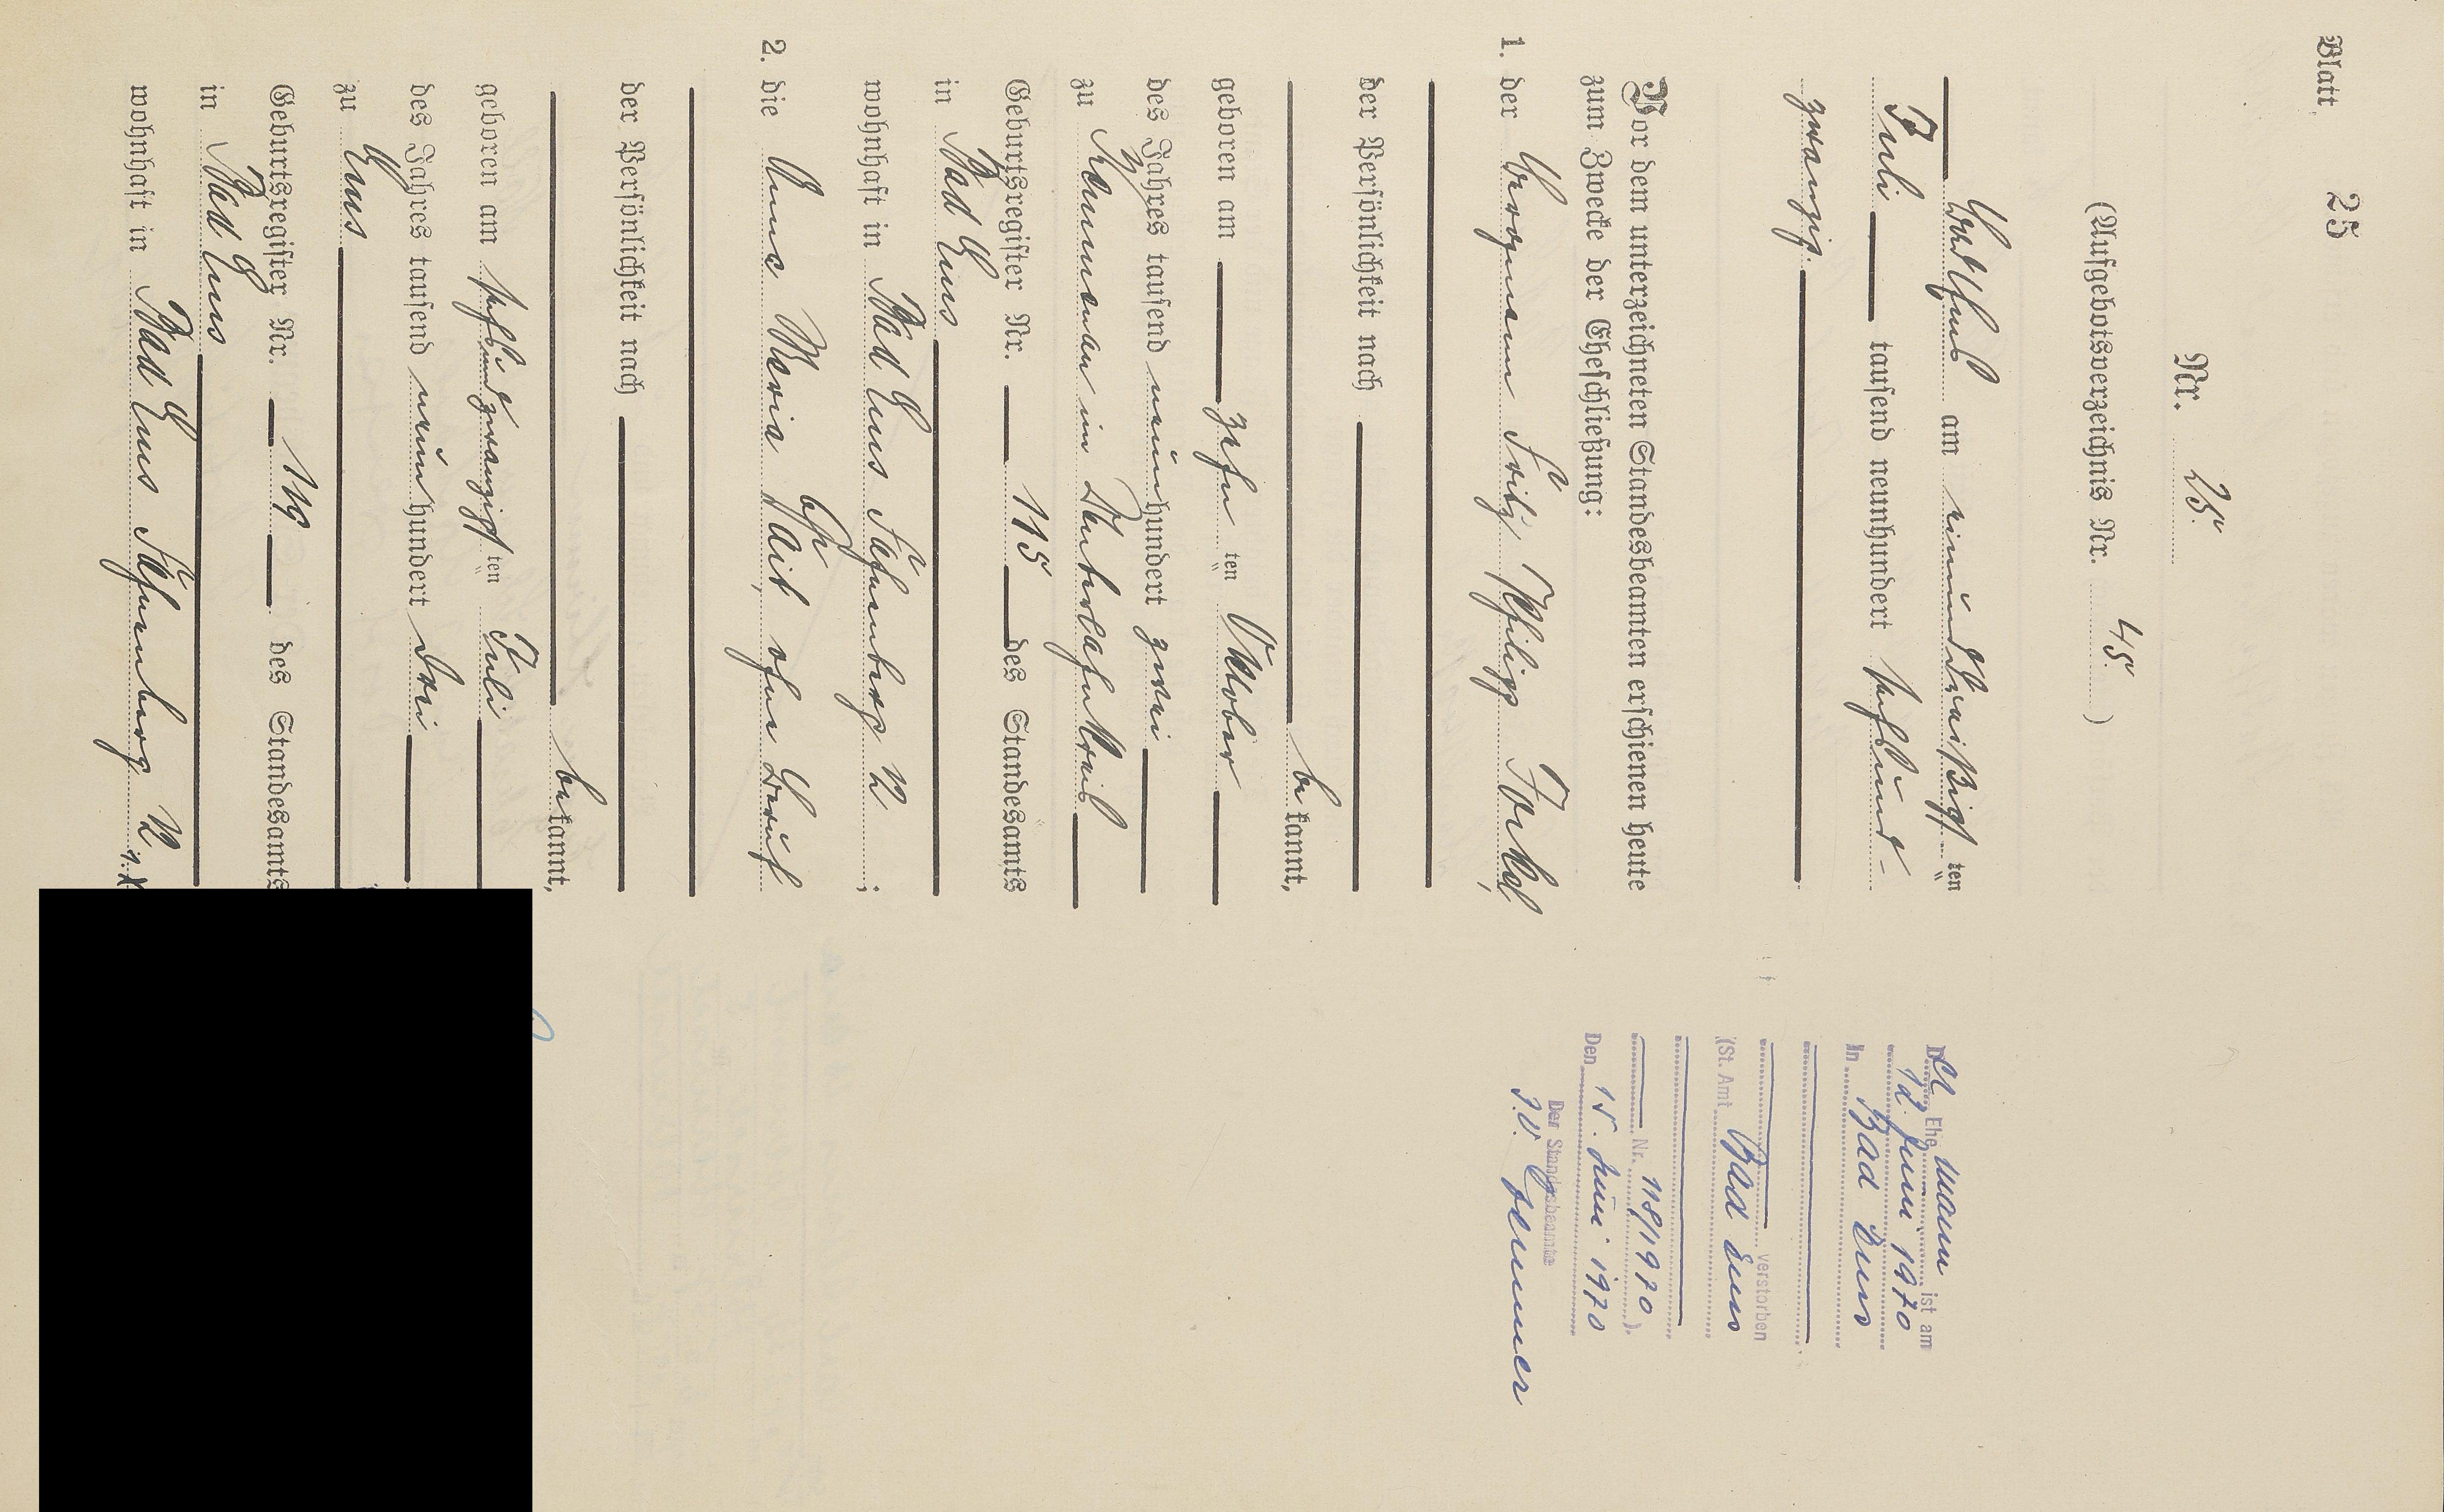 Blatt 25
Nr. 25.
(Aufgebotsverzeichnis Nr. 45.)
am einunddreißigsten
Juli tausend neunhundert sechsund-
zwanzig.
Vor dem unterzeichneten Standesbeamten erschienen heute
zum Zwecke der Eheschließung:
1. der Fritz Philipp
der Persönlichkeit nach
bekannt,
geboren am zehnten Oktober
des Jahres tausend neunhundert zwei
zu Kemmenau im Unterlahnkreis
Geburtsregister Nr. 115 des Standesamts
in Bad Ems
wohnhaft in Bad Ems 12;
2. die Maria ohne Beruf
der Persönlichkeit nach
bekannt,
geboren am sechsundzwanzigsten Juli
des Jahres tausend neunhundert drei
zu Ems
Geburtsregister Nr. 119 des Standesamts
in Bad Ems
wohnhaft in Bad Ems 12
Der Ehemann ist am
12. Juni 1970
in Bad Ems
verstorben
(St. Amt Bad Ems
Nr. 118/1970).
Den 15. Juni 1970
Der Standesbeamte
I.V.